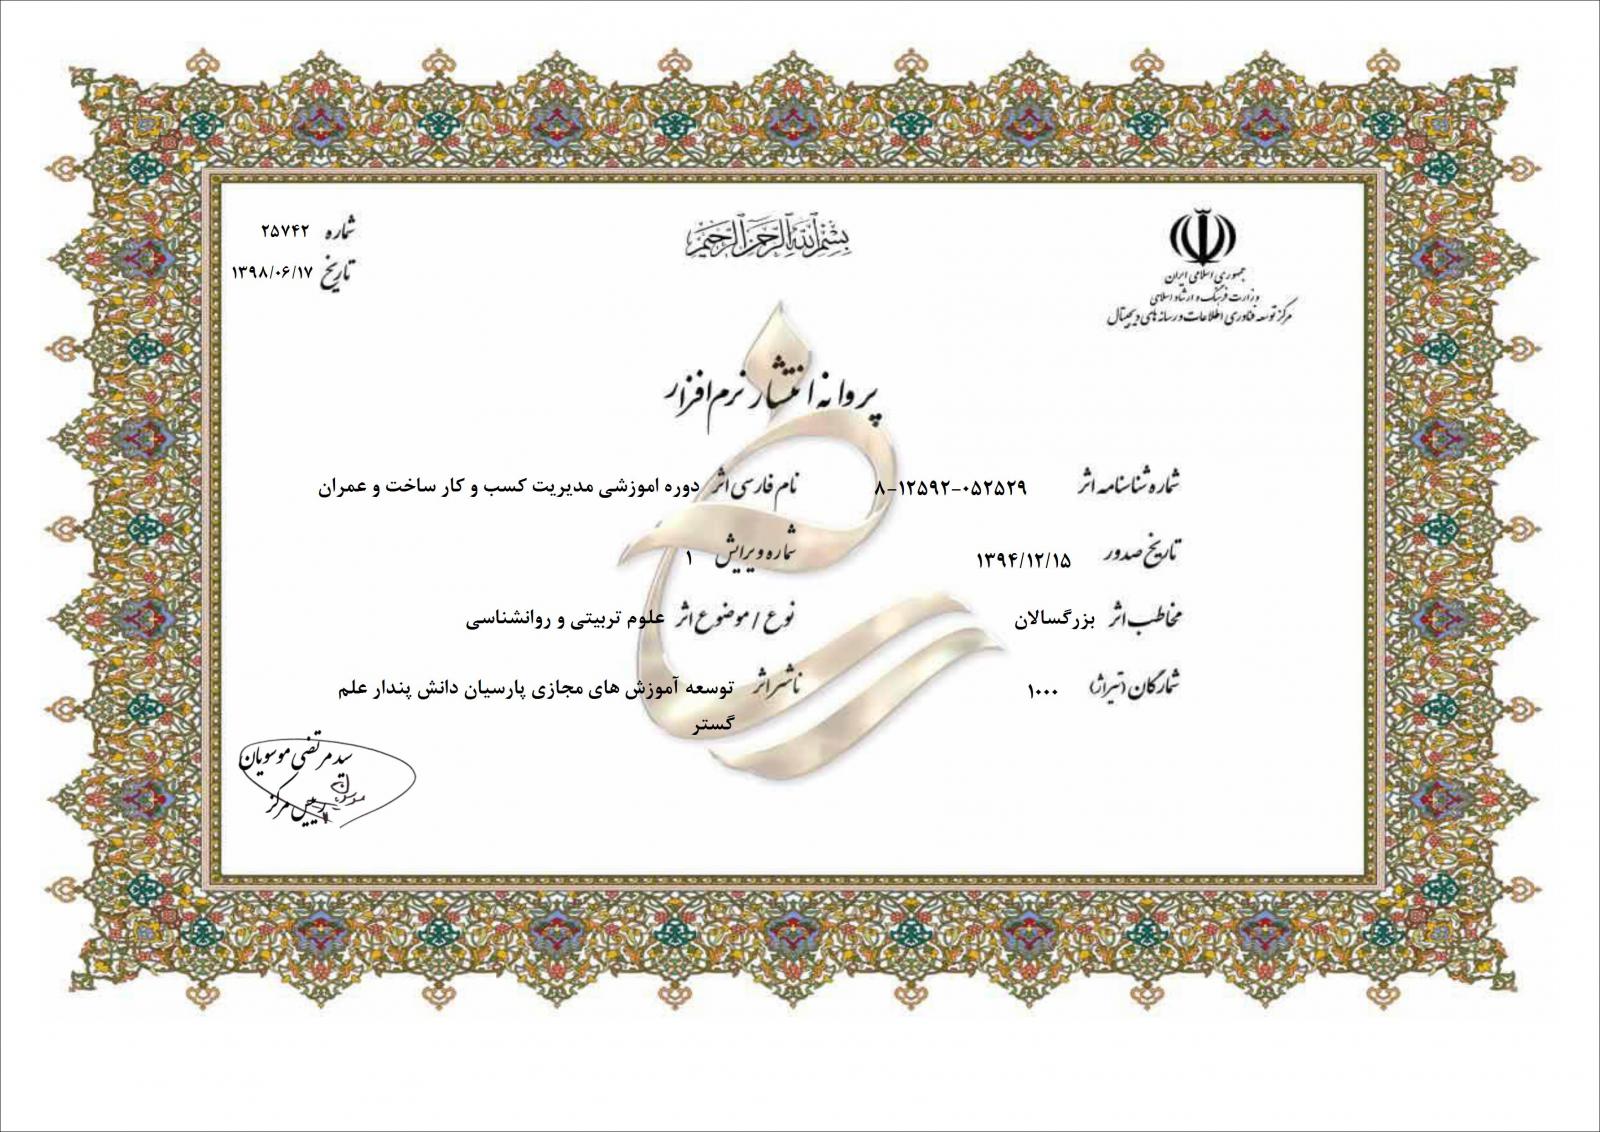 بسم الله الرحمن الرحیم
جمهوری اسلامی ایران
وزارت فرهنگ و ارشاد اسلامی
مرکز توسعه فناوری اطلاعات و رسانه های دیجیتال
شماره ۲۵۷۴۲
تاریخ ۱۳۹۸/۰۶/۱۷
پروانه انتشار نرم افزار
شماره شناسنامه اثر ۸-۱۲۵۹۲-۰۵۲۵۲۹ نام فارسی اثر دوره اموزشی مدیریت کسب و کار ساخت و عمران
تاریخ صدور ۱۳۹۴/۱۲/۱۵ شماره ویرایش ۱
مخاطب اثر بزرگسالان نوع / موضوع اثر علوم تربیتی و روانشناسی
شمارگان (تیراژ) ۱۰۰۰ ناشر اثر توسعه آموزش های مجازی پارسیان دانش پندار علم
گستر
سید مرتضی موسویان
رییس مرکز